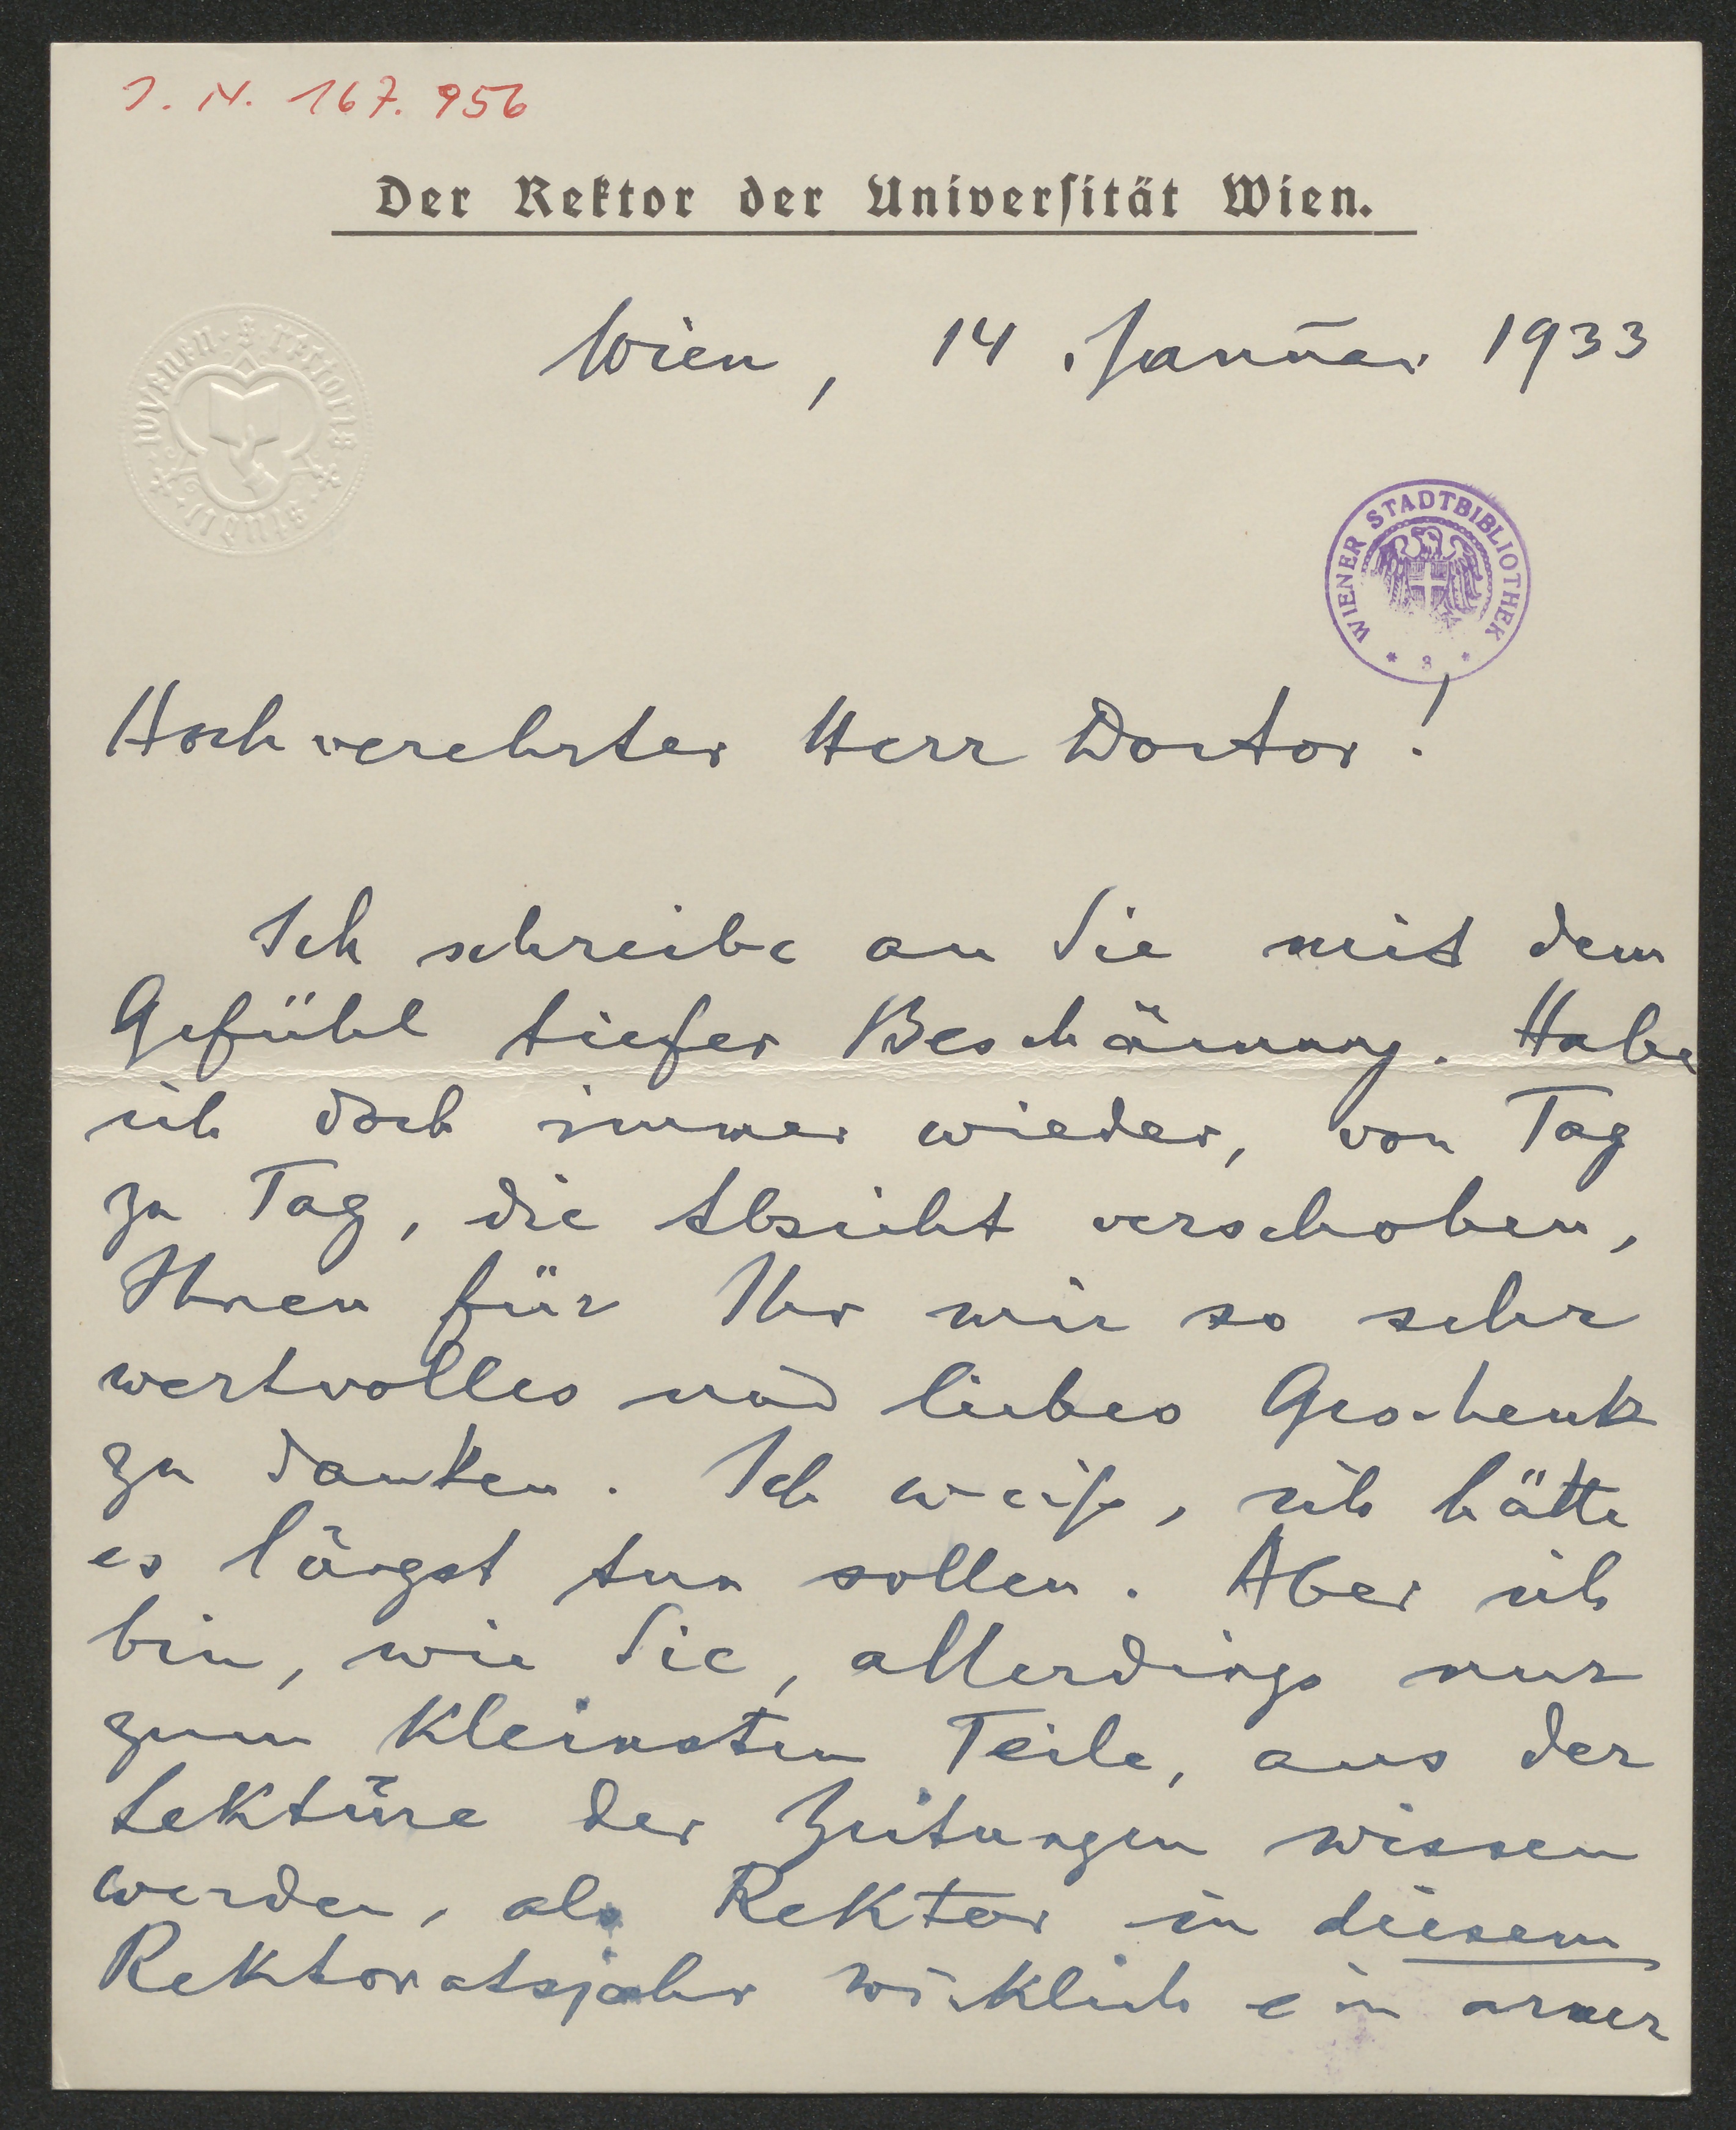 J. N. 167.956
Der Rektor der Universität Wien.
Wien, 14. Januar 1933
WIENER STADTBIBLIOTHEK
Hochverehrter Herr Doctor!
Ich schreibe an Sie mit dem
Gefühl tiefer Beschämung. Habe
ich doch immer wieder, von Tag
zu Tag, die Absicht verschoben,
Ihnen für Ihr mir so sehr
wertvolles und liebes Geschenk
zu danken. Ich weiß, ich hätte
es längst tun sollen. Aber ich
bin, wie Sie, allerdings nur
zum kleinsten Teile, aus der
Lektüre der Zeitungen wissen
werden, als Rektor in diesem
Rektoratsjahr wirklich ein armer